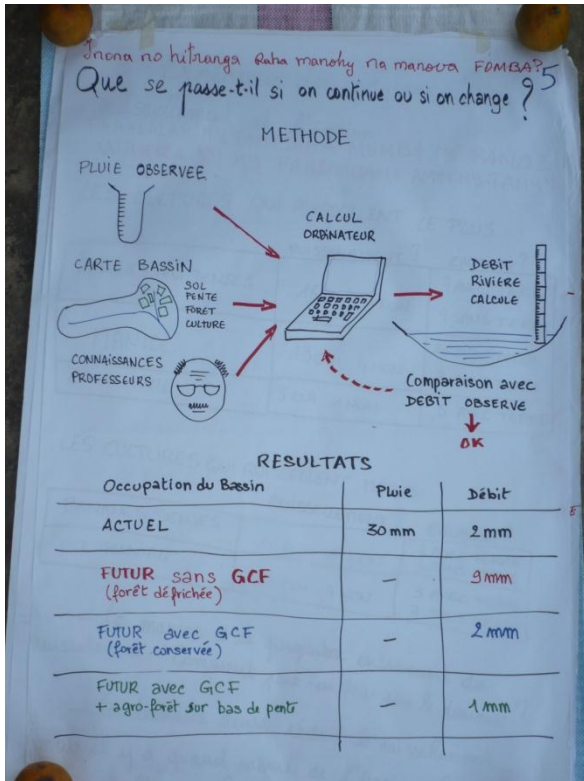 Inona no hitranga Raha manohy na manova FOMBA?
5
Que se passe-t-il si on continue ou si on change ?
METHODE
PLUIE OBSERVEE
CARTE BASSIN
SOL
PENTE
FORET
CULTURE
CONNAISSANCES
PROFESSEURS
CALCUL
ORDINATEUR
DEBIT
RIVIERE
CALCULE
Comparaison avec
DEBIT OBSERVE
OK
RESULTATS
Occupation du Bassin Pluie Débit
ACTUEL 30 mm 2 mm
FUTUR sans GCF — 9 mm
(forêt défrichée)
FUTUR avec GCF — 2 mm
(forêt conservée)
FUTUR avec GCF
+ agro-forêt sur bas de pente — 1 mm